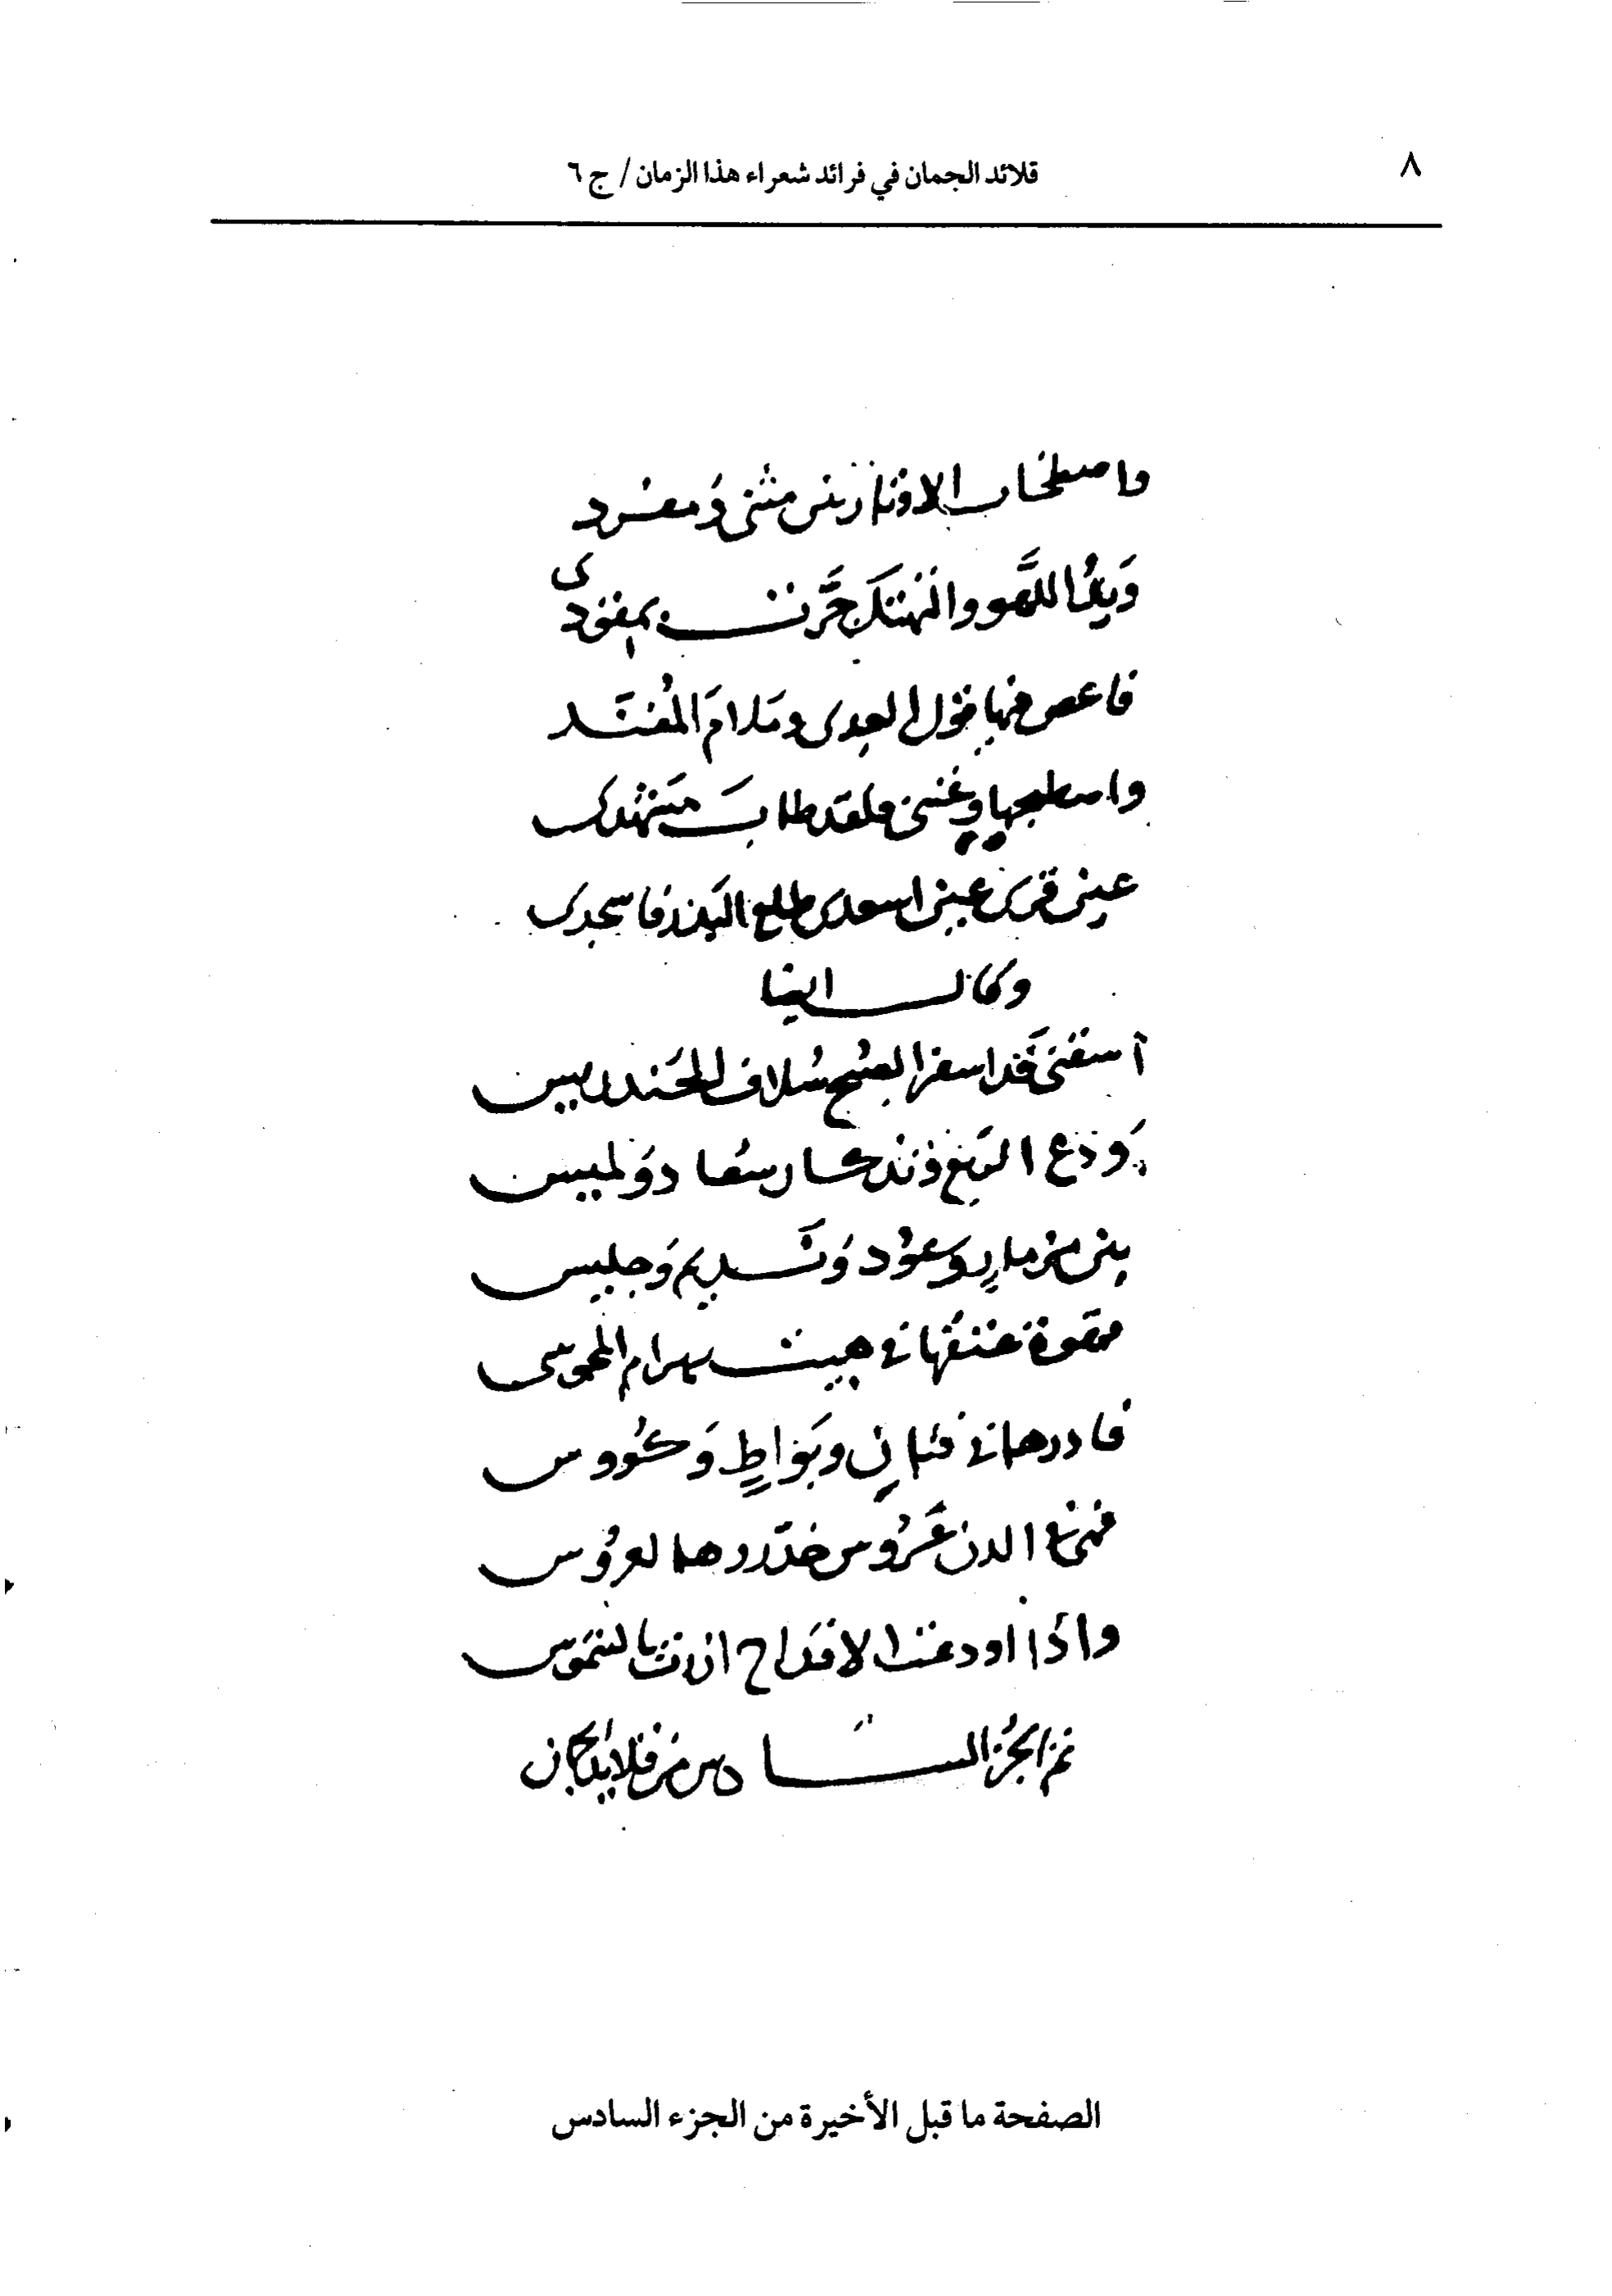 ٨
قلائد الجمان في فرائد شعراء هذا الزمان / ج ٦
واصطخاب الاوتار بين مثنى وَمفرد
اللَّهو والتهتك بمقودى
فاعص فيها قول العدى وملام المفنّد
واصطبحها وغننى فلقد طاب
عين قرى عين اسعدى طلع البدر فاسجدى
وقال ايضا
آسقنى قَد اسفر الصبح سُلاف الخندريس
وَدع الربع وتذكار سعاد وَلميس
بين مزمارٍ وعود وَنديم وَجليس
قهوة عتقها فى بيت بهرام المجوسى
فادرها فى وبواطٍ وَكؤوس
فهى الدن عَروس خدرها لعروس
واذا اودعت الاقداح ازرت بالشموس
تم الجزء السادس من قلائد الجمان
الصفحة ما قبل الأخيرة من الجزء السادس